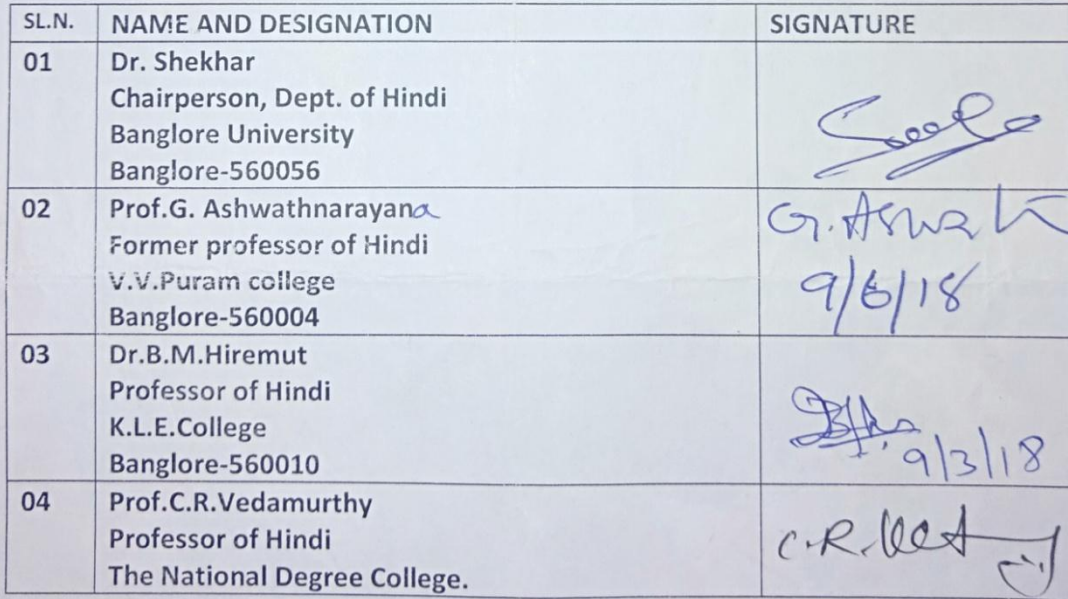 SL.N. NAME AND DESIGNATION SIGNATURE
01 Dr. Shekhar
Chairperson, Dept. of Hindi
Banglore University
Banglore-560056
02 Prof.G. Ashwathnarayana
Former professor of Hindi
V.V.Puram college
Banglore-560004
G. Aswath
9/6/18
03 Dr.B.M.Hiremut
Professor of Hindi
K.L.E.College
Banglore-560010
9/3/18
04 Prof.C.R.Vedamurthy
Professor of Hindi
The National Degree College.
C.R.